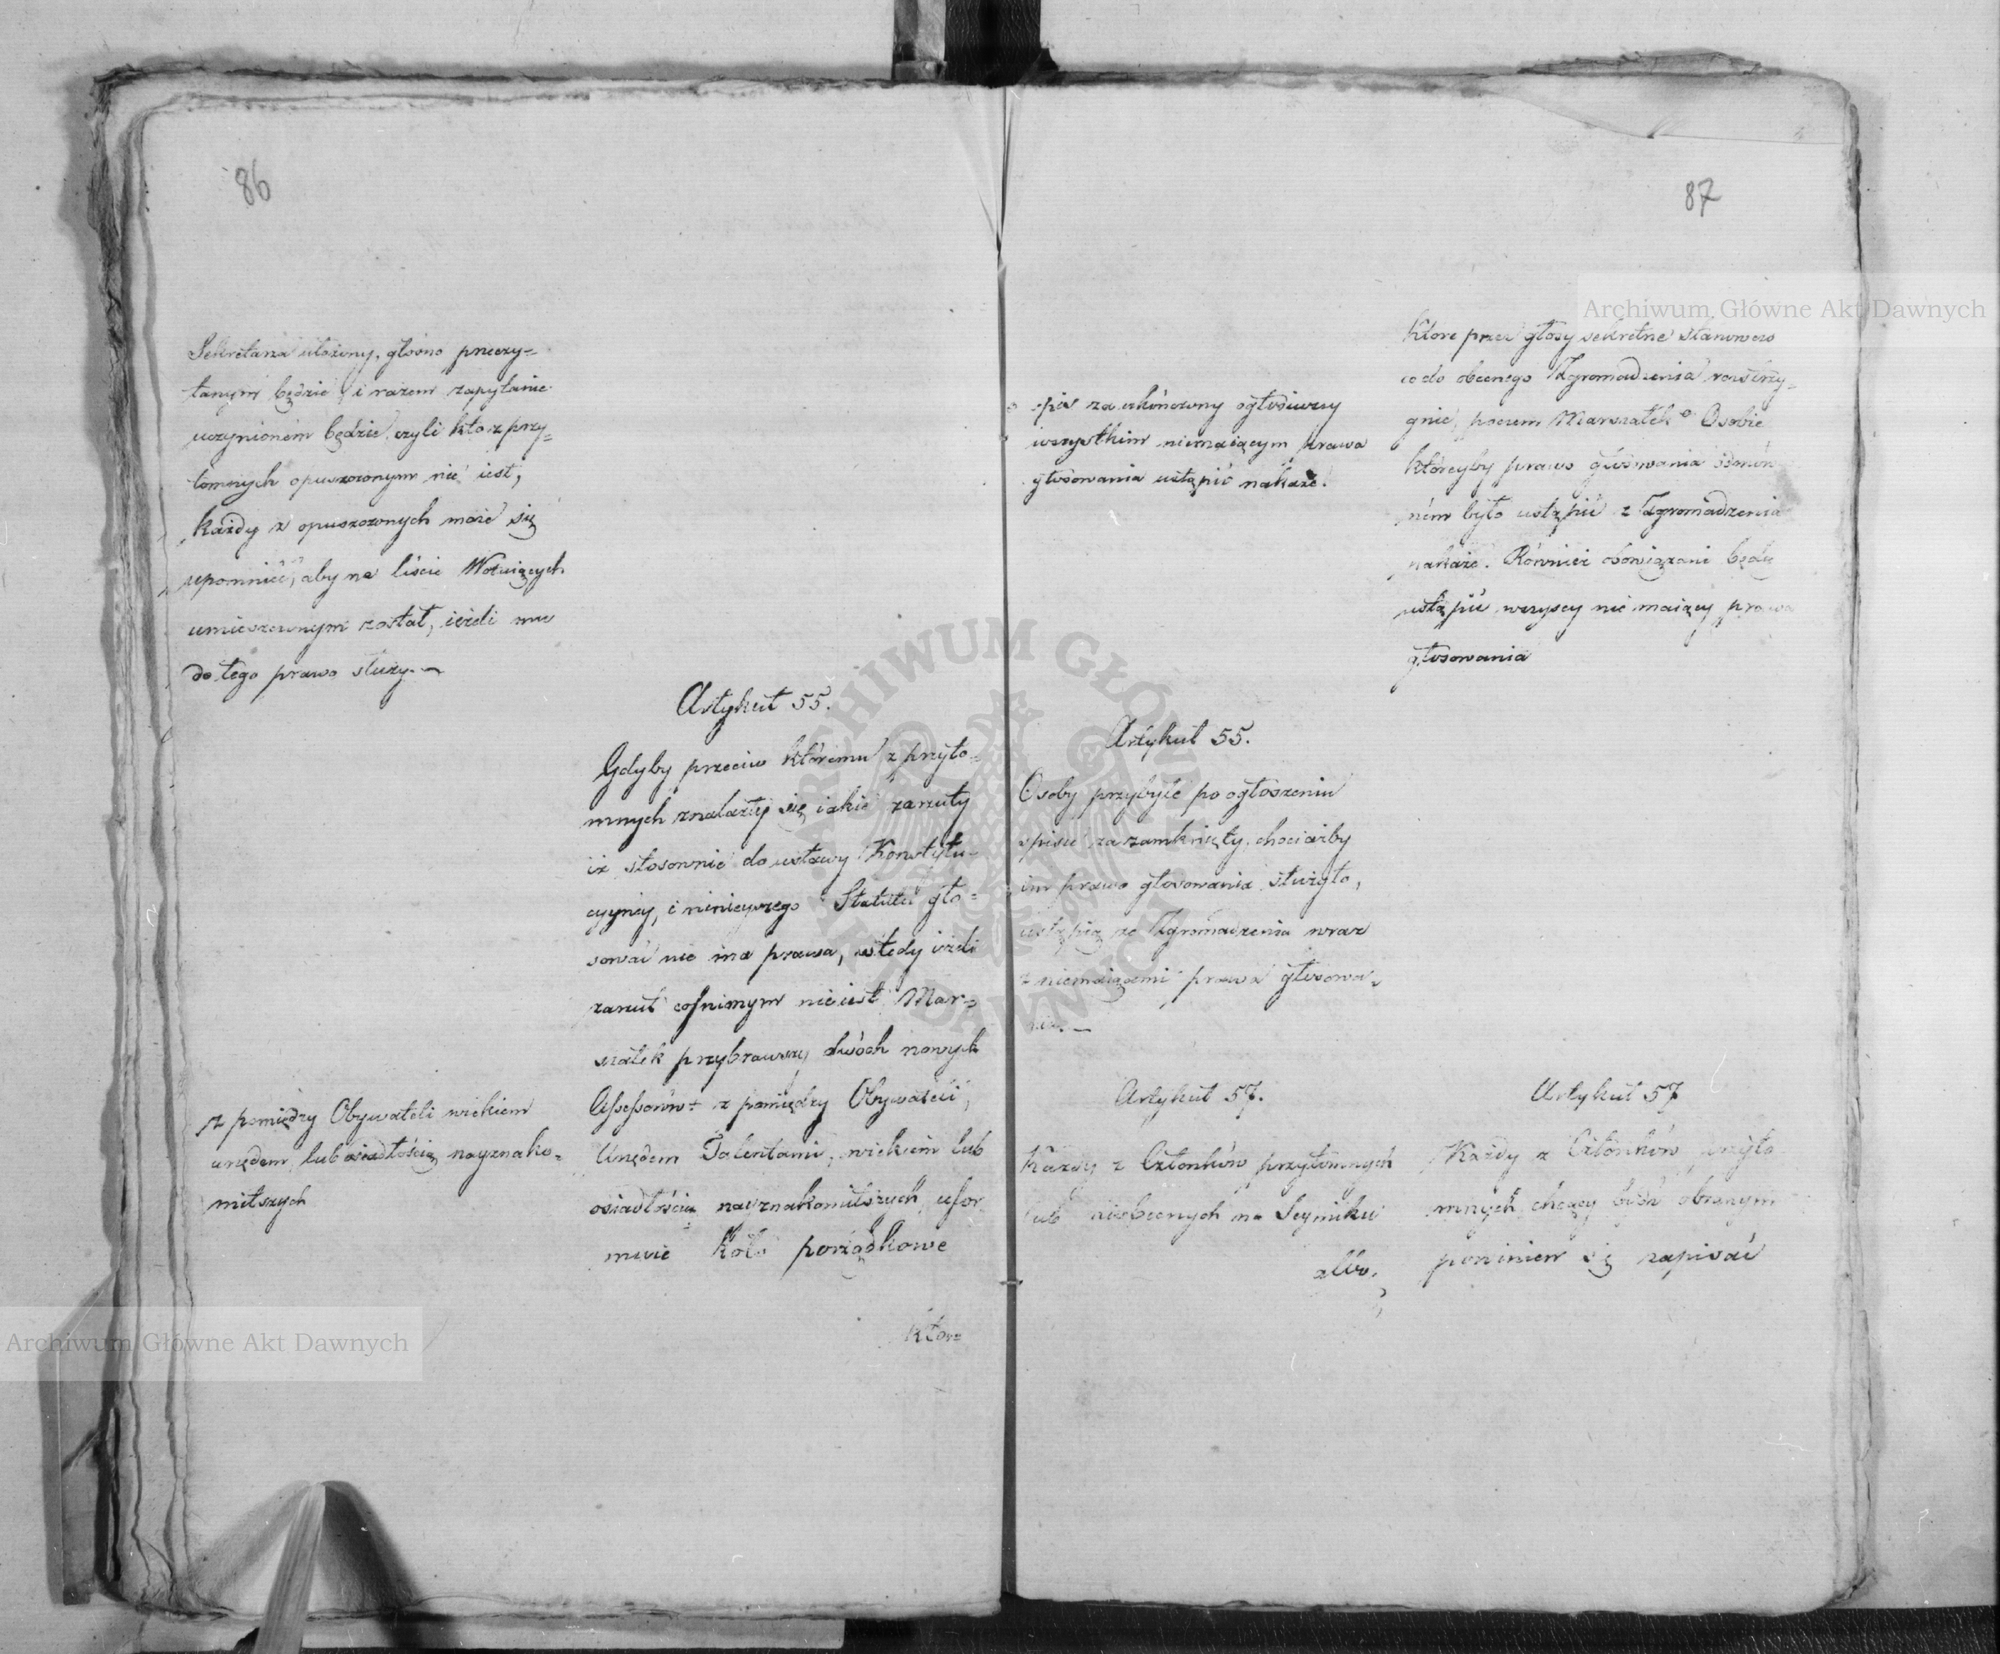 86
Sekretarza ułożony, głośno przeczy=
tanym będzie, i razem zapytanie
uczynioném będzie, czyli kto z przy=
tomnych opuszczonym nie iest,
każdy z opuszczonych może się
upomnieć, aby na liście Wotuiących
umieszczonym został, ieżeli mu
do tego prawo służy.—
z pomiędzy Obywateli wiekiem
urzędem, lub osiadłością nayznako=
mitszych
Artykuł 55.
Gdyby przeciw któremu z przyto=
mnych znalazły się iakie zarzuty
iż stosownie do ustawy Konstytu=
cyyney, i ninieyszego Statutu gło=
sować nie ma prawa, wtedy ieżeli
zarzut cofnimym nie iest Mar=
szałek przybrawszy dwóch nowych
Assessorów z pomiędzy Obywateli,
Urzędem Talentami, wiekiem lub
osiadłością nayznakomitszych, ufor
muie Koło porządkowe
któr=
87
spis za ukończony ogłosiwszy
wszystkim niemaiącym prawa
głosowania ustąpić nakaże.
Artykuł 55.
Osoby przybyłe po ogłoszeniu
spisu za zamknięty, chociażby
im prawo głosowania służyło,
ustąpią ze Zgromadzenia wraz
z niemaiącemi prawa głosowa=
nia.—
Artykuł 57.
Każdy z Członków przytomnych
lub nieobecnych na Seymiku
albo,
które przez głosy sekretne stanowczo
co do obecnego Zgromadzenia rozstrzy=
gnie, poczem Marszałek Osobie
któreyby prawo głosowania odmówio
ném było ustąpić z Zgromadzenia
nakaże. Również obowiązani będą
ustąpić wszyscy nie maiący prawa
głosowania
Artykuł 57
Każdy z Członków przyto
mnych chcący bydź obranym
powinien się zapisać
Archiwum Główne Akt Dawnych
Archiwum Główne Akt Dawnych
ARCHIWUM GŁÓWNE AKT DAWNYCH